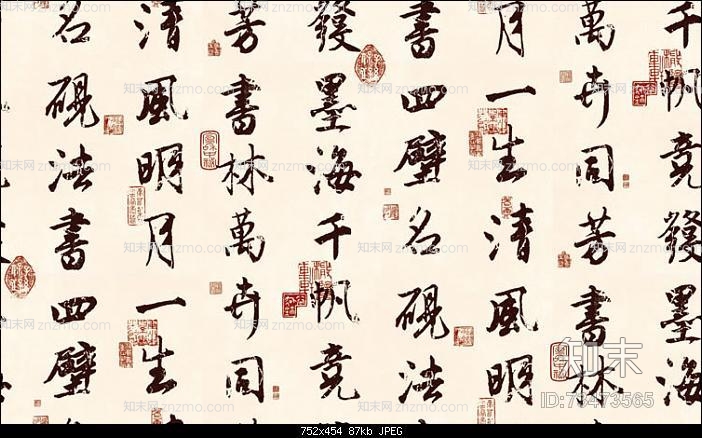 千帆竞發墨海
萬卉同芳書林
月一生清風明
書四壁名硯法
發墨海千帆竞
芳書林萬卉同
清風明月一生
名硯法書四壁
知末网znzmo.com
知末
ID:73473565
752x454 87kb JPEG